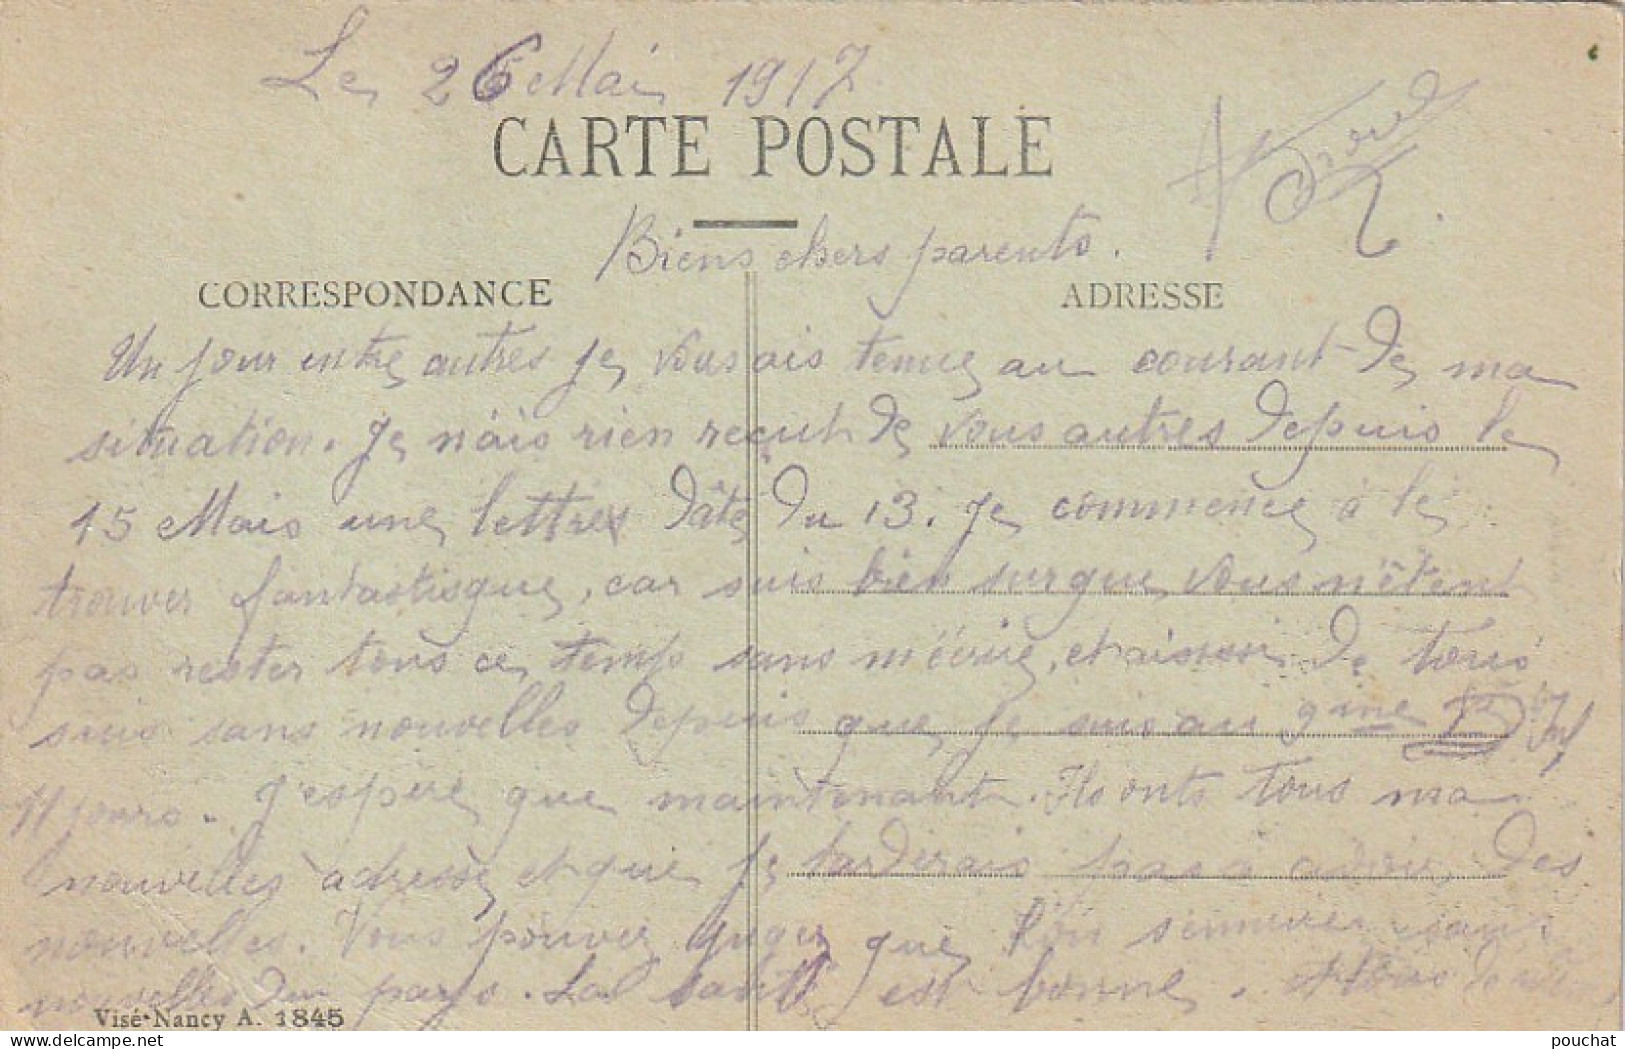 Le 26 Mai 1917
CARTE POSTALE
Biens chers parents.
CORRESPONDANCE
ADRESSE
Un jour entre autres je vous ais tenue au courant de ma
situation. Je n'ais rien reçut de vous autres depuis le
15 Mais une lettre dâté du 13. Je commence à le
trouver fantastique, car suis bien sur que vous n'êtent
pas rester tous ce temp sans m'écrire, et aisssi de tous
suis sans nouvelles depuis que je suis au 9ème
11 jours. J'espère que maintenant. Ils onts tous ma
nouvelles adresse et que je tarderais pas à avoir des
nouvelles. Vous pouvez juger que l'on s'ennuier sans
nouvelles du pays. La santé est bonne. et tous
Visé Nancy A. 1845
pouchat